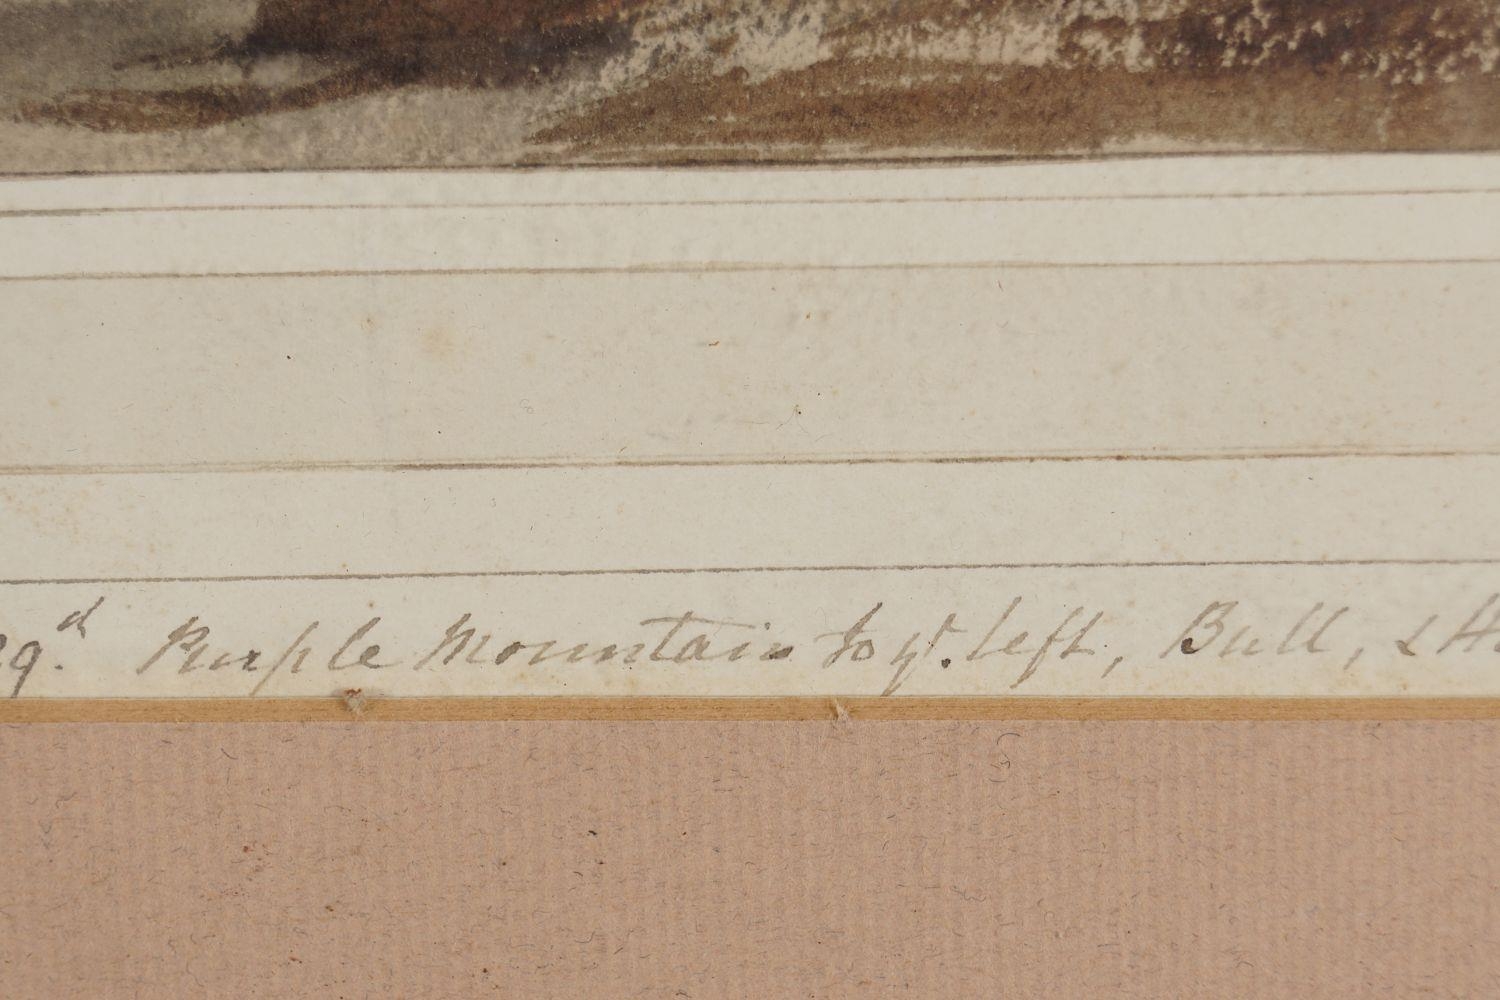 29.th Purple Mountain to yr. left, Bull, & H